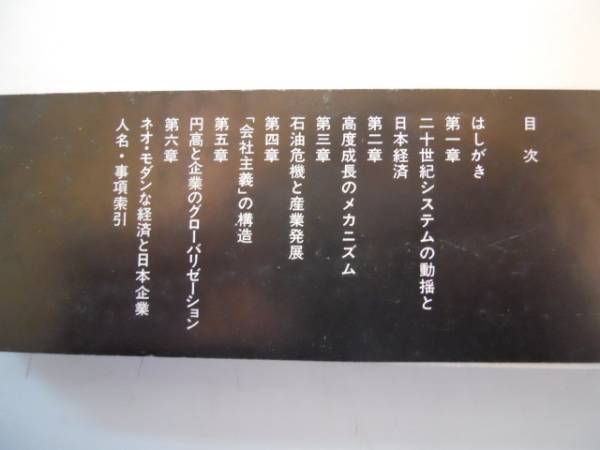 目次
はしがき
第一章
二十世紀システムの動揺と
日本経済
第二章
高度成長のメカニズム
第三章
石油危機と産業発展
第四章
「会社主義」の構造
第五章
円高と企業のグローバリゼーション
第六章
ネオ・モダンな経済と日本企業
人名・事項索引